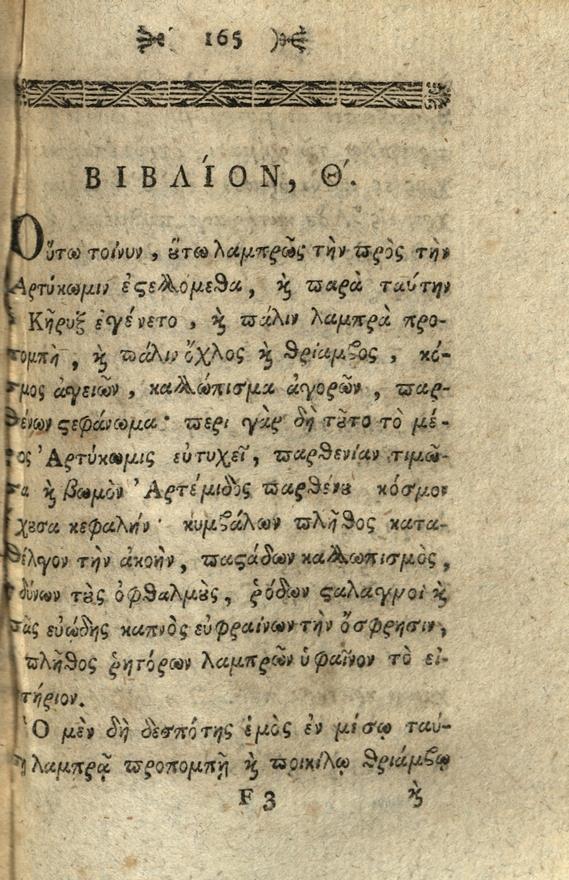 165
ΒΙΒΛΊΟΝ, Θ΄.
Οὕτω τοίνυν, ȣ̔́τω λαμπρῶς τὴν πρὸς τὴν
Ἀρτύκωμιν ἐϛελλόμεθα, ϗ̀ παρὰ ταύτην
Κῆρυξ ἐγένετο, ϗ̀ πάλιν λαμπρὰ προ-
πομπὴ, ϗ̀ πάλιν ὄχλος ϗ̀ θρίαμβος, κό-
σμος ἀγειῶν, καλλώπισμα ἀγορῶν, παρ-
θένων ϛεφάνωμα· περι γὰρ δὴ τȣ͂το τὸ μέ-
ρος Ἀρτύκωμις εὐτυχεῖ, παρθενίαν τιμῶ-
σα ϗ̀ βωμὸν Ἀρτέμιδος παρθένȣ κόσμον
χȣσα κεφαλήν· κυμβάλων πλῆθος κατα-
θέλγον τὴν ἀκοὴν, παϛάδων καλλωπισμὸς,
δύνων τȣ̀ς ὀφθαλμȣ̀ς, ῥόδων ϛαλαγμοὶ ϗ̀
πᾶς εὐώδης καπνὸς εὐφραίνων τὴν ὄσφρησιν,
πλῆθος ῥητόρων λαμπρῶν ὑφαῖνον τὸ εἰ-
τήριον.
Ὁ μὲν δὴ δεσπότης ἐμὸς ἐν μέσῳ ταύ-
τῃ λαμπρᾷ προπομπῇ ϗ̀ ποικίλῳ θριάμβῳ
F 3 ϗ̀